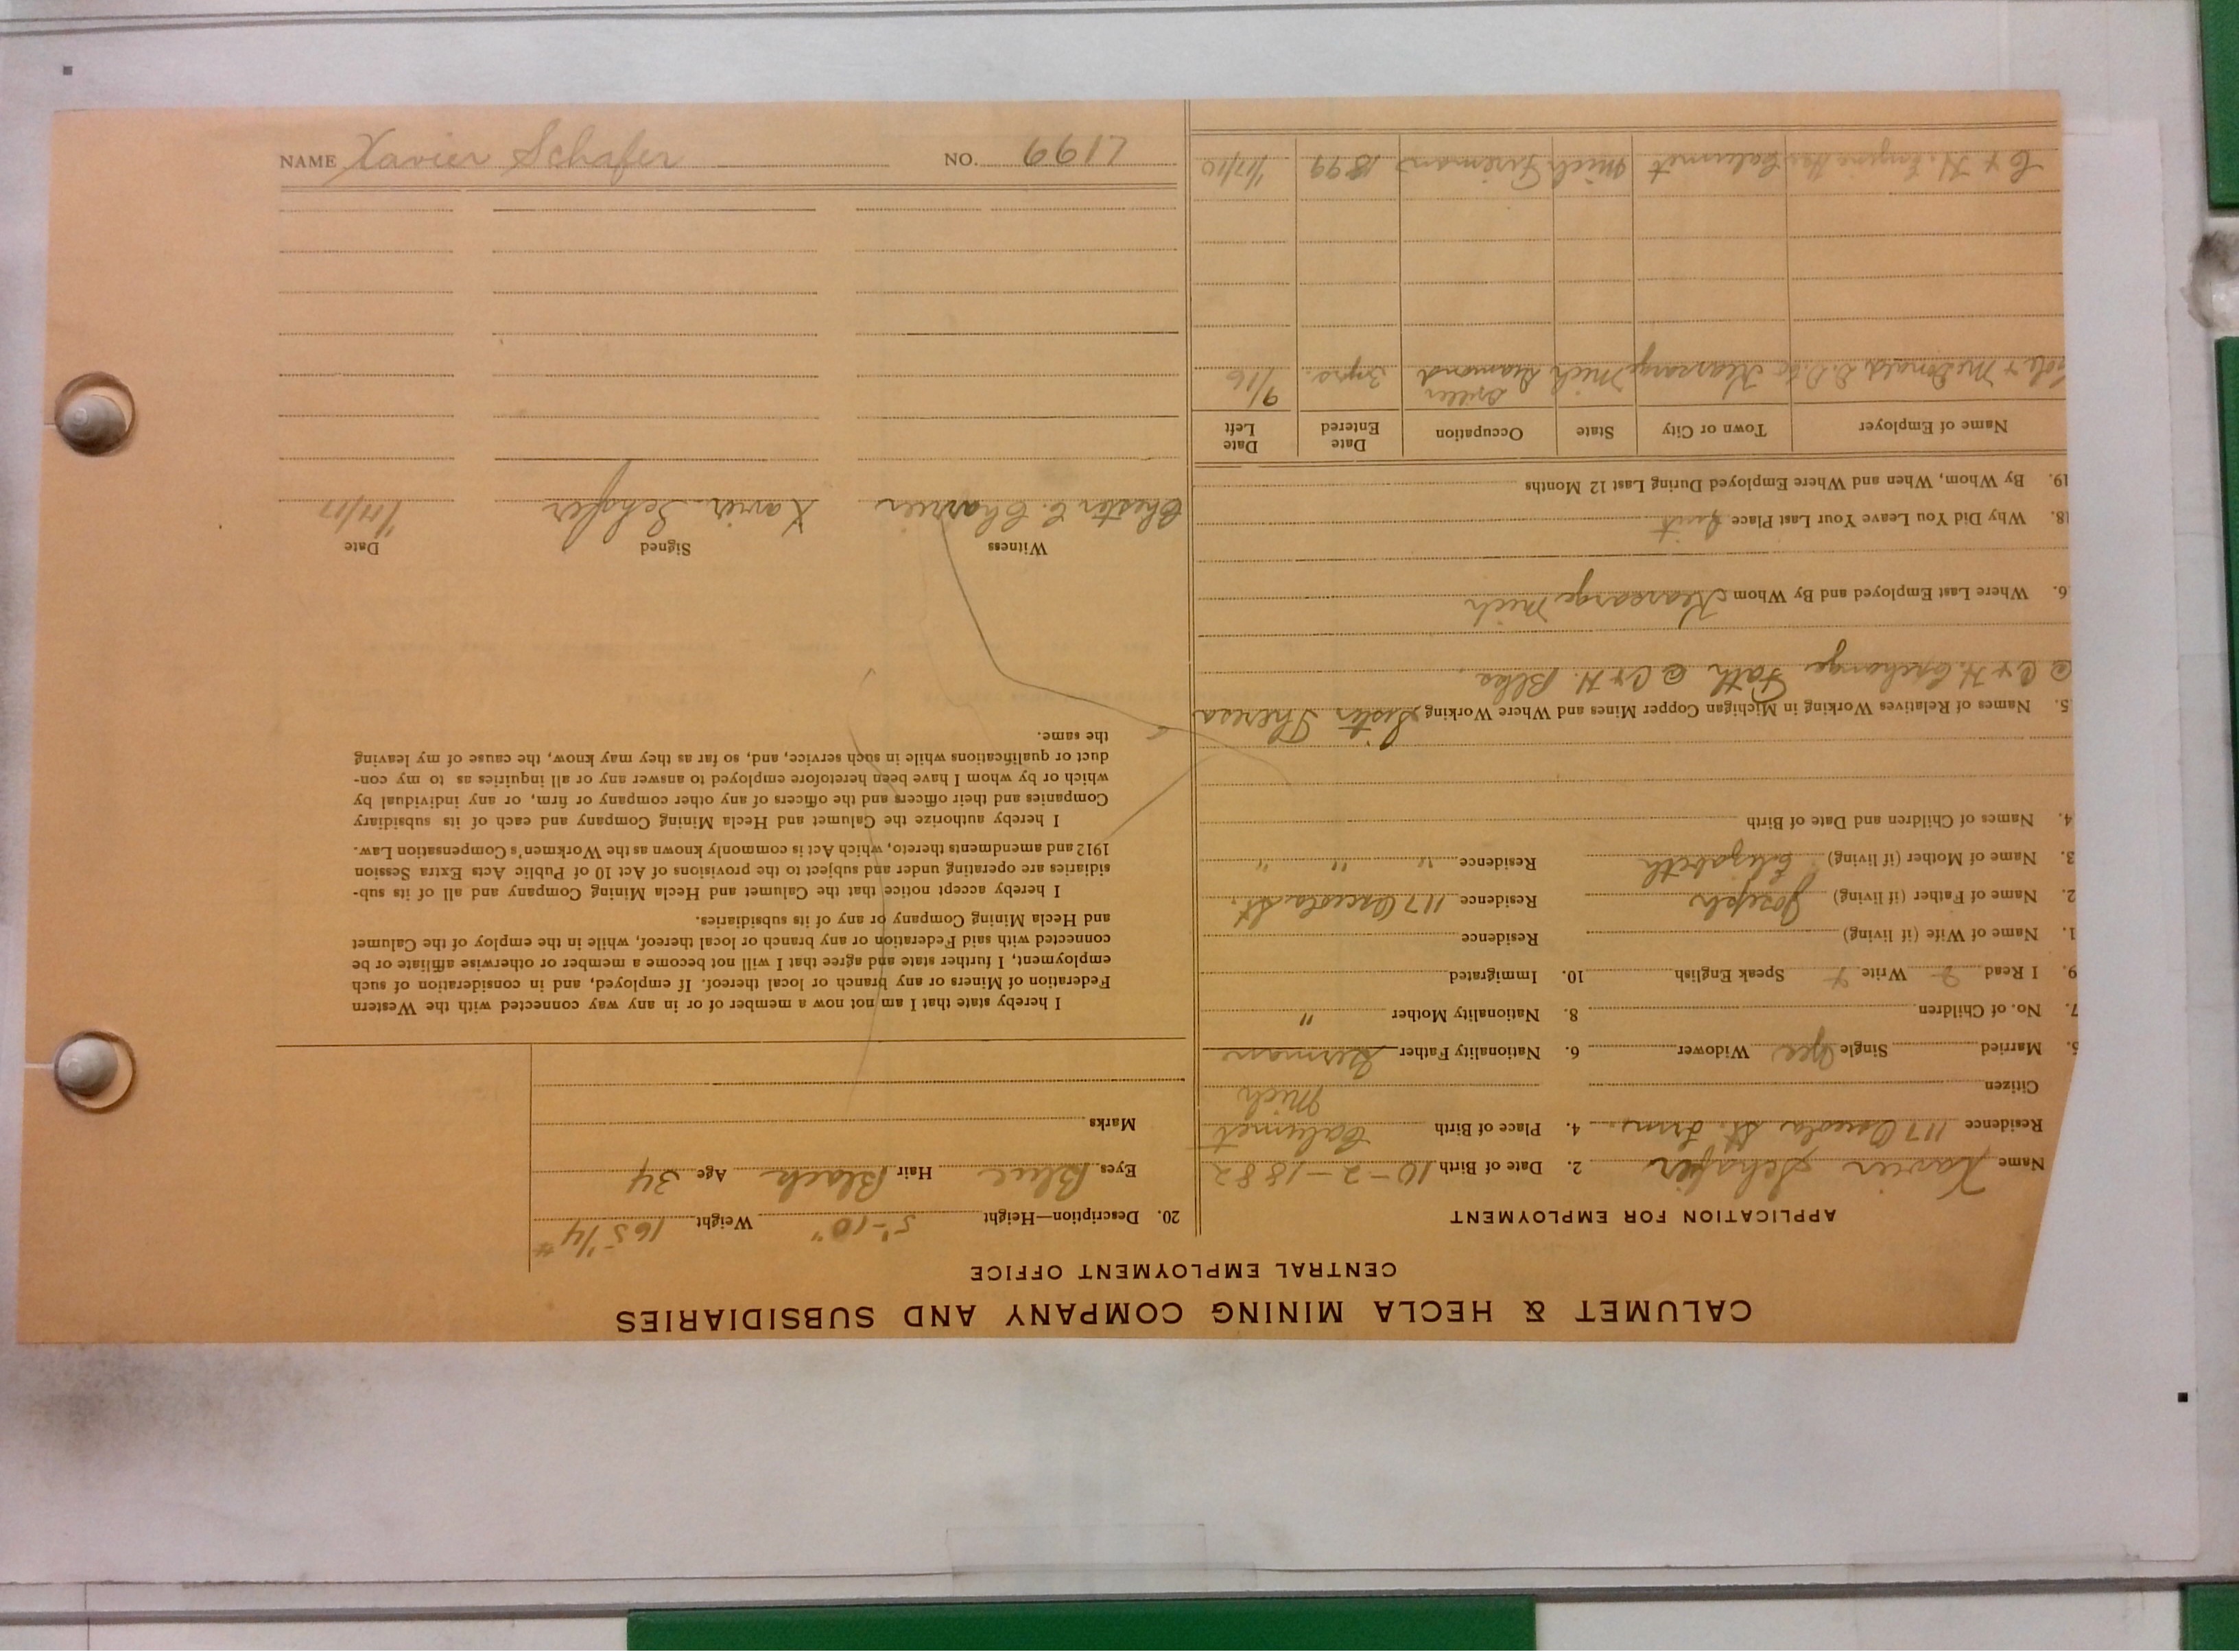 CALUMET & HECLA MINING COMPANY AND SUBSIDIARIES
CENTRAL EMPLOYMENT OFFICE
APPLICATION FOR EMPLOYMENT
Name Xavier Schafer 2. Date of Birth 10-2-1882
Residence 117 Osceola St. Lrm. 4. Place of Birth Calumet
Mich
Citizen
5. Married Single Yes Widower 6. Nationality Father German
7. No. of Children 8. Nationality Mother "
9. I Read Write Speak English 10. Immigrated
1. Name of Wife (if living) Residence
2. Name of Father (if living) Joseph Residence 117 Osceola St.
3. Name of Mother (if living) Elizabeth Residence " " "
4. Names of Children and Date of Birth
5. Names of Relatives Working in Michigan Copper Mines and Where Working Sister Theresa
@ C & H. Exchange Fath @ C & H. Blks.
6. Where Last Employed and By Whom Kearsarge Mich
18. Why Did You Leave Your Last Place Quit
19. By Whom, When and Where Employed During Last 12 Months
Name of Employer Town or City State Occupation Date Entered Date Left
Cole & McDonald D. D. Co Kearsarge Mich Diamond Driller 3 yrs. 9/16
C & H. Engine Hse Calumet Mich Fireman 1899 1/17/10
20. Description—Height 5'-10" Weight 165 1/4 #
Eyes Blue Hair Black Age 34
Marks
I hereby state that I am not now a member of or in any way connected with the Western
Federation of Miners or any branch or local thereof. If employed, and in consideration of such
employment, I further state and agree that I will not become a member or otherwise affiliate or be
connected with said Federation or any branch or local thereof, while in the employ of the Calumet
and Hecla Mining Company or any of its subsidiaries.
I hereby accept notice that the Calumet and Hecla Mining Company and all of its sub-
sidiaries are operating under and subject to the provisions of Act 10 of Public Acts Extra Session
1912 and amendments thereto, which Act is commonly known as the Workmen's Compensation Law.
I hereby authorize the Calumet and Hecla Mining Company and each of its subsidiary
Companies and their officers and the officers of any other company or firm, or any individual by
which or by whom I have been heretofore employed to answer any or all inquiries as to my con-
duct or qualifications while in such service, and, so far as they may know, the cause of my leaving
the same.
Witness Signed Date
Chester E. Xavier Schafer 1/11/17
NAME Xavier Schafer NO. L199